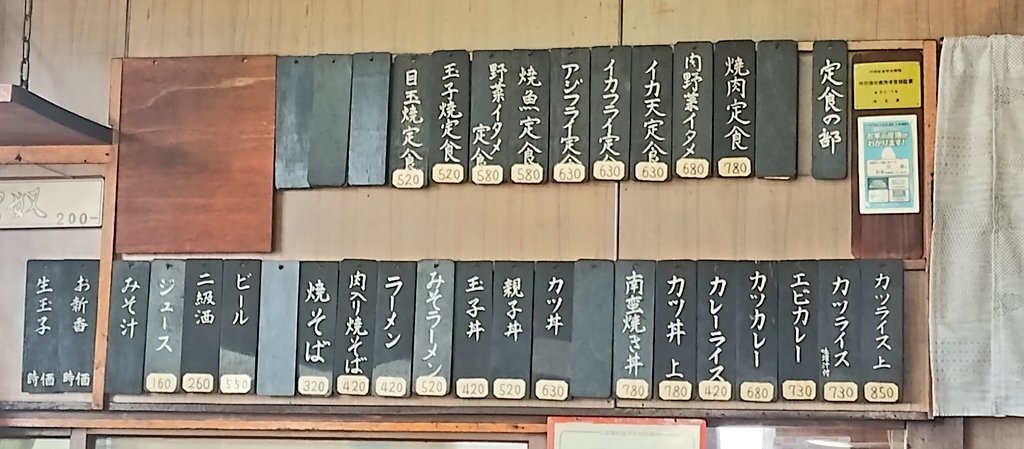 定食の部
焼肉定食 780
肉野菜イタメ 680
イカ天定食 630
イカフライ定食 630
アジフライ定食 630
焼魚定食 580
野菜イタメ定食 580
玉子焼定食 520
目玉焼定食 520
お米の産地が
わかります!
カツライス上 850
カツライス 730
エビカレー 730
カツカレー 680
カレーライス 420
カツ丼 上 780
南蛮焼き丼 780
カツ丼 630
親子丼 520
玉子丼 420
みそラーメン 520
ラーメン 420
肉入り焼そば 420
焼そば 320
ビール 550
二級酒 260
ジュース 160
みそ汁
お新香 時価
生玉子 時価
200-